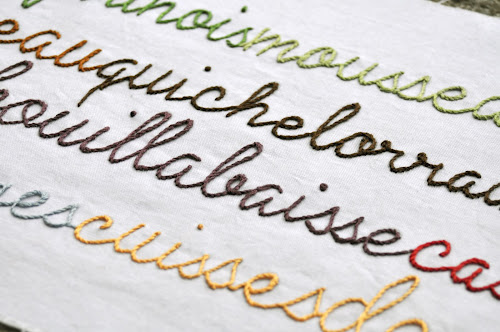 inoismoussea
eauquichelorrai
bouillabaissecas
escuissesd